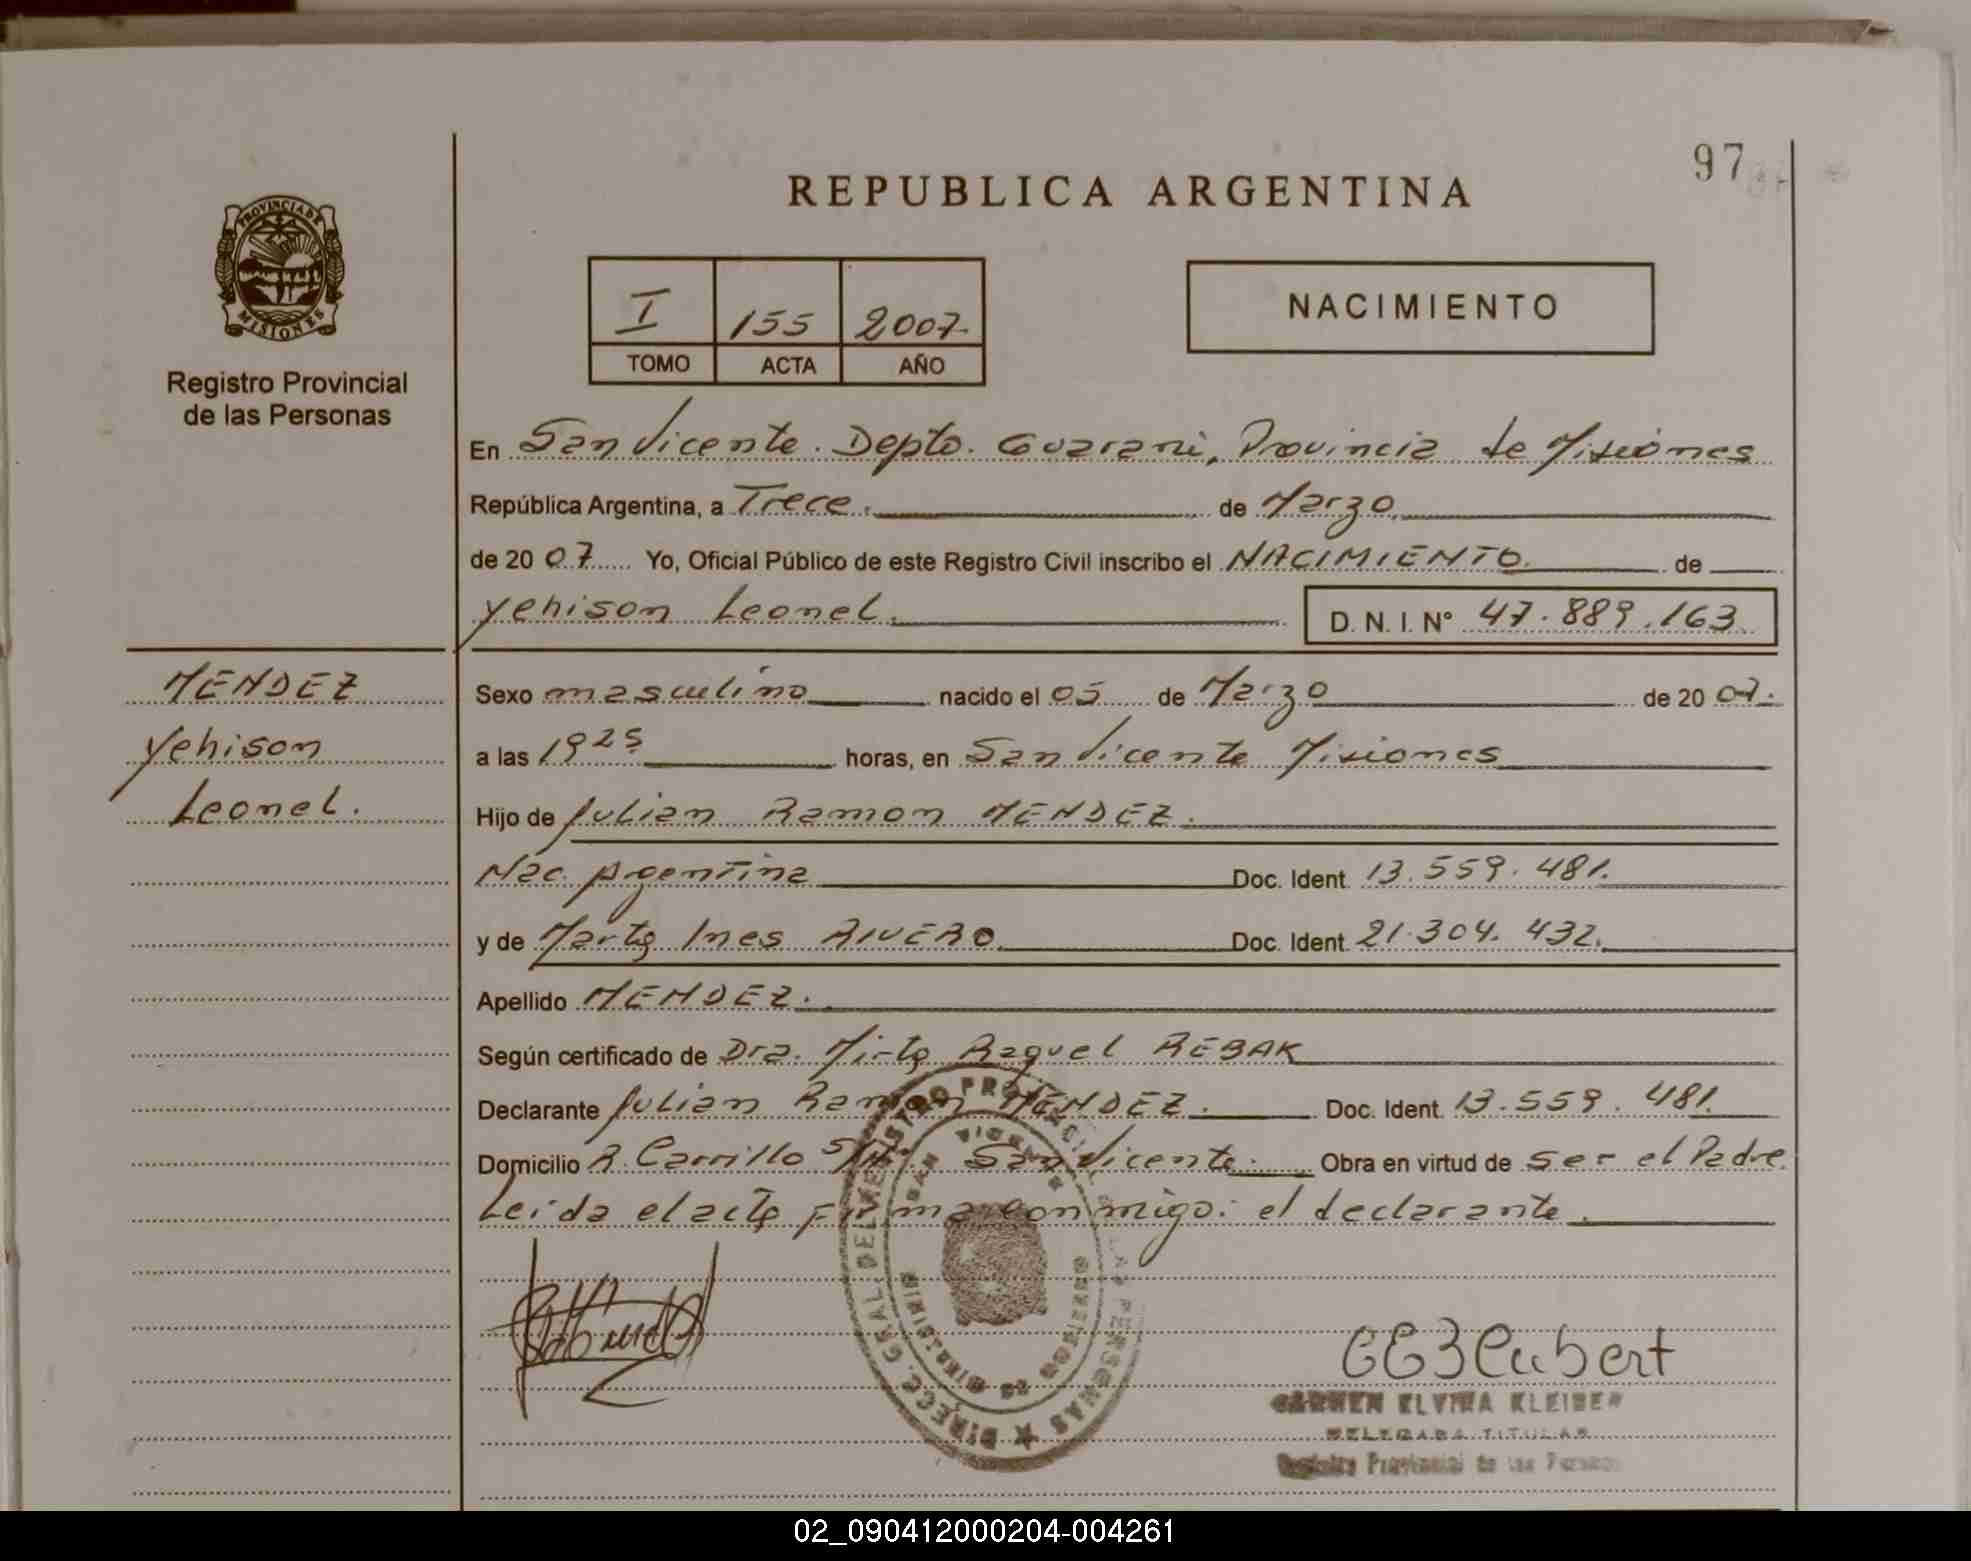 97
REPUBLICA ARGENTINA
PROVINCIA DE
MISIONES
Registro Provincial
de las Personas
I 155 2007
TOMO ACTA AÑO
NACIMIENTO
En San Vicente. Depto. Guarani, Provincia de Misiones
República Argentina, a Trece. de Marzo
de 2007 Yo, Oficial Público de este Registro Civil inscribo el NACIMIENTO. de
Yehison Leonel. D. N. I. N° 47.889.163
MENDEZ
Yehison
Leonel.
Sexo masculino nacido el 05 de Marzo de 2007.
a las 19 25 horas, en San Vicente Misiones
Hijo de Julian Ramon MENDEZ.
Nac. Argentina Doc. Ident. 13.559.481.
y de Marta Ines RIVERO Doc. Ident. 21.304.432.
Apellido MENDEZ.
Según certificado de Dra. Mirta Raquel REBAK
Declarante Julian Ramon MENDEZ. Doc. Ident. 13.559.481.
Domicilio R. Carrillo S/N. San Vicente. Obra en virtud de ser el Padre.
Leida el acta firma conmigo: el declarante.
DIRECC. GRAL. DEL REGISTRO PROVINCIAL DE LAS PERSONAS
SAN VICENTE
CARMEN ELVIRA KLEIBER
DELEGADA TITULAR
Registro Provincial de las Personas
02_090412000204-004261